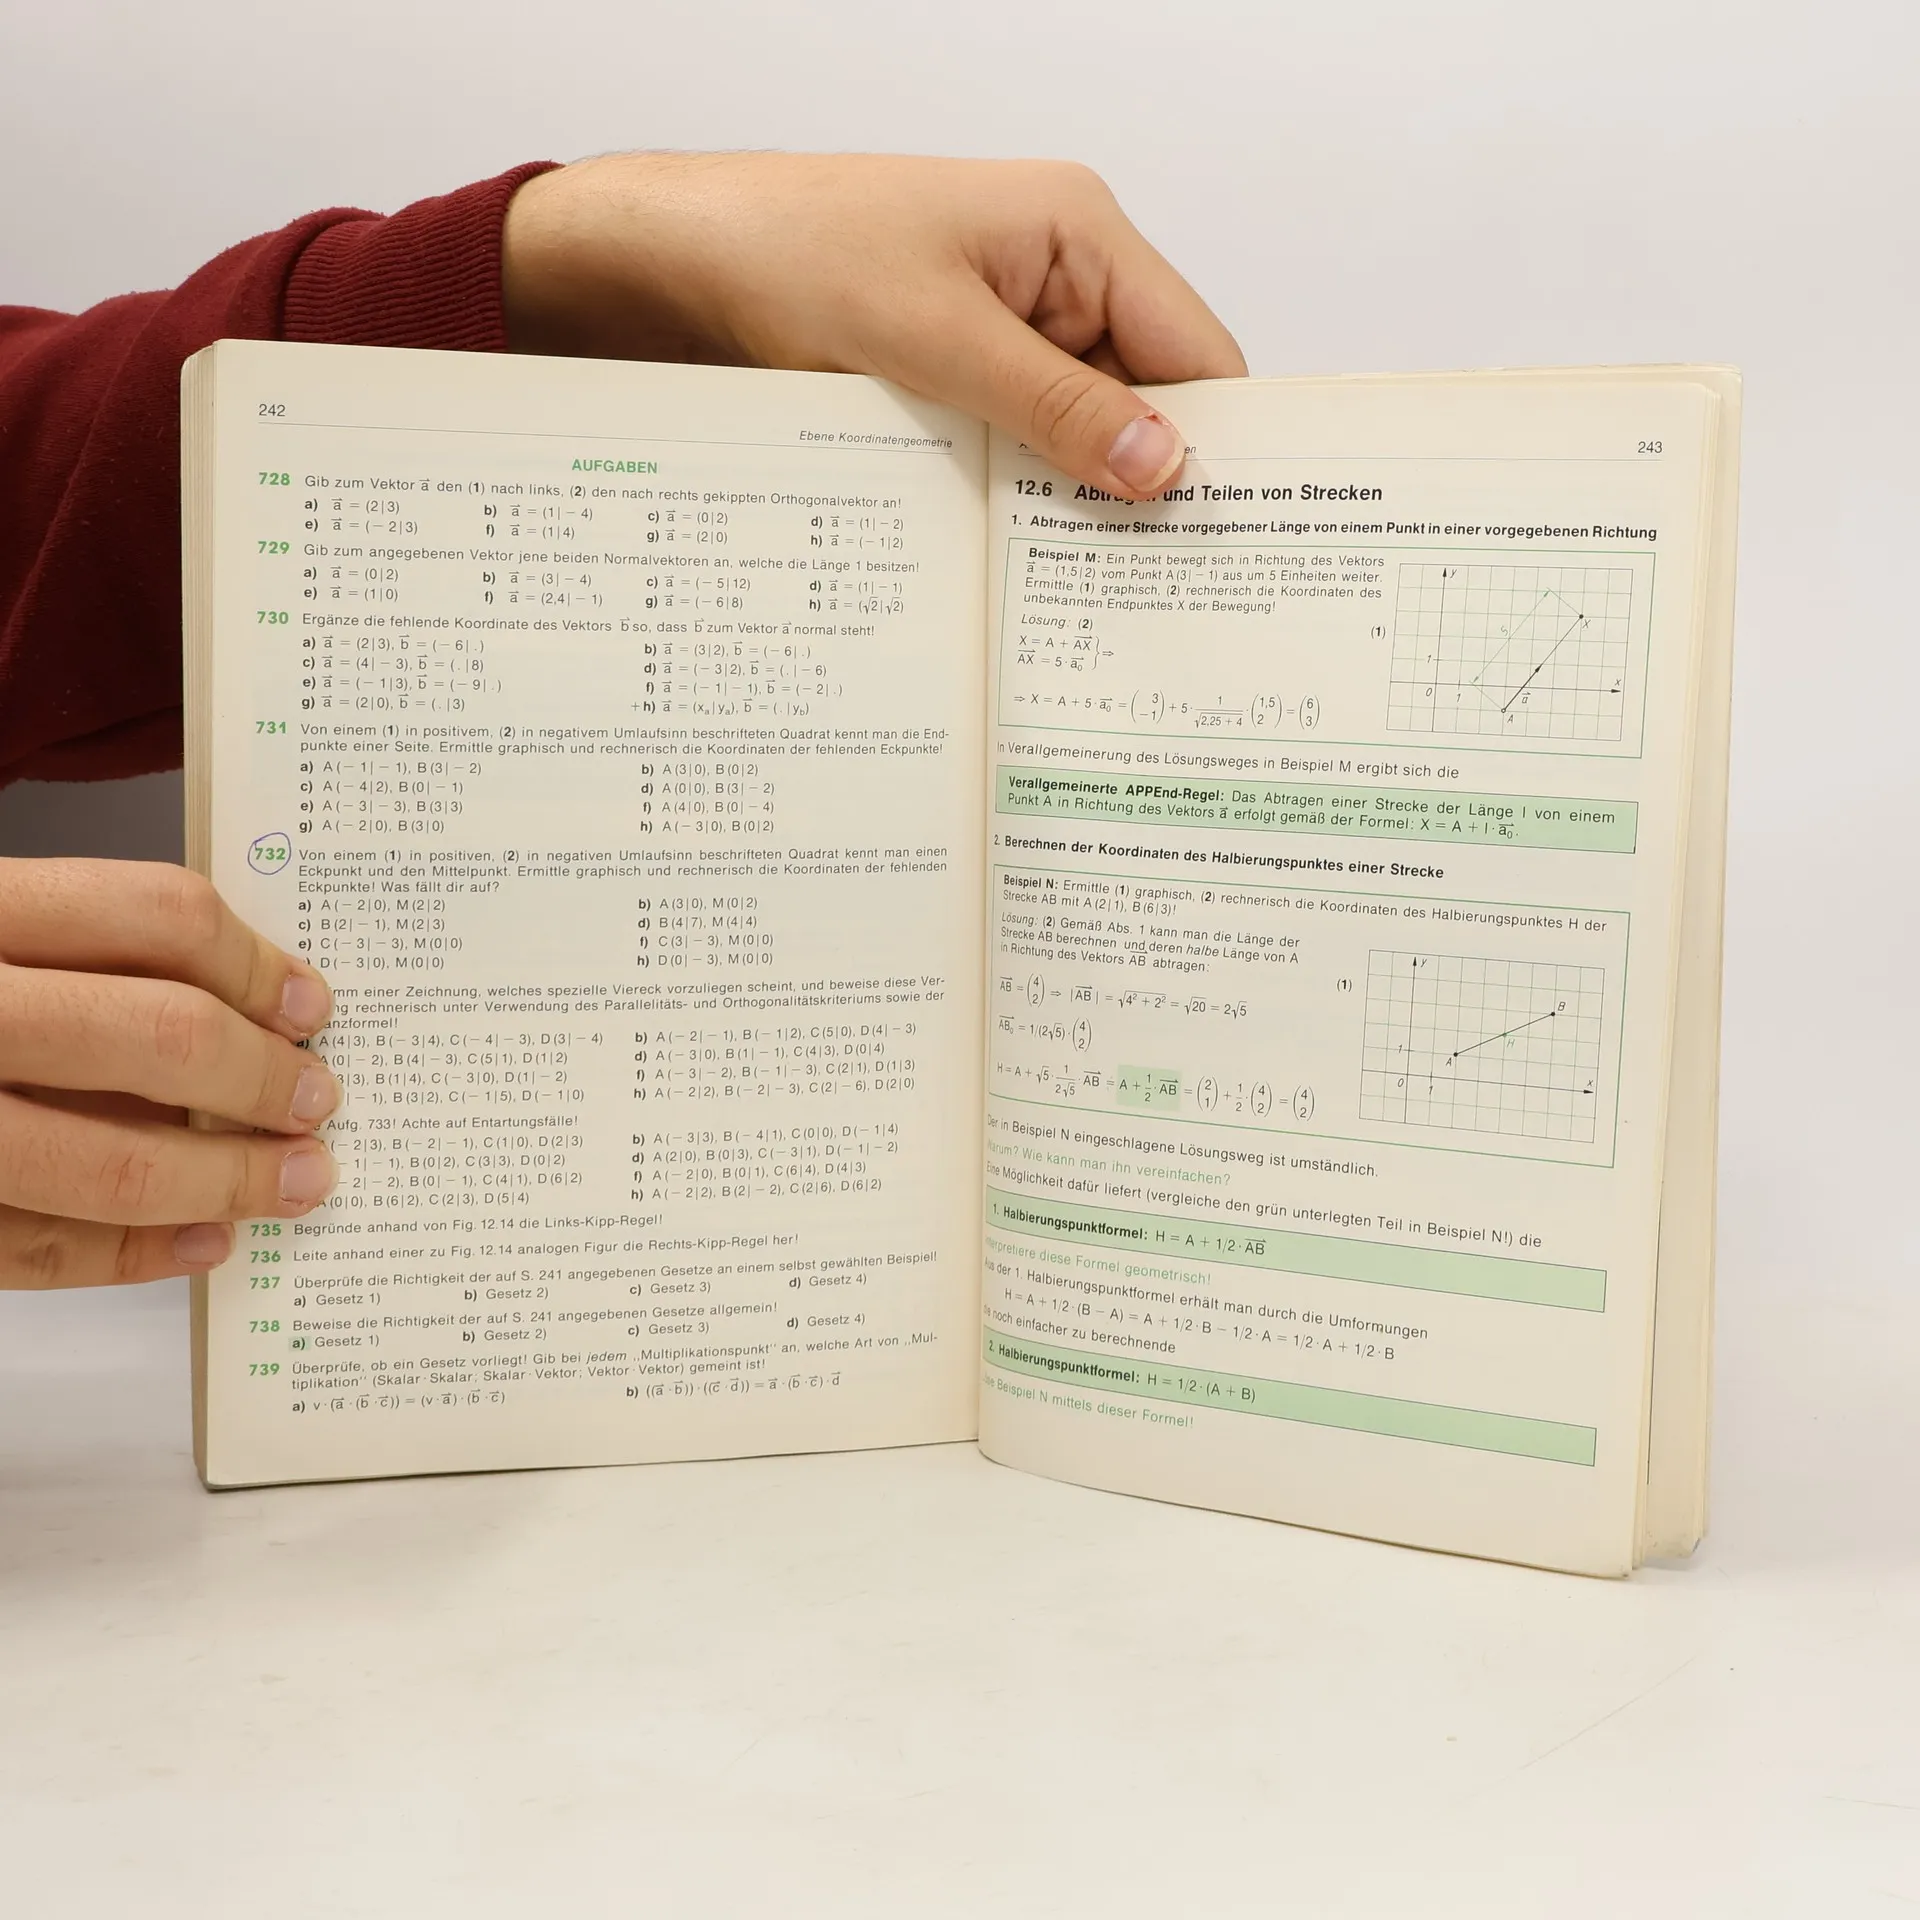 242
Ebene Koordinatengeometrie
AUFGABEN
728 Gib zum Vektor a⃗ den (1) nach links, (2) den nach rechts gekippten Orthogonalvektor an!
a) a⃗ = (2|3) b) a⃗ = (1|−4) c) a⃗ = (0|2) d) a⃗ = (1|−2)
e) a⃗ = (−2|3) f) a⃗ = (1|4) g) a⃗ = (2|0) h) a⃗ = (−1|2)
729 Gib zum angegebenen Vektor jene beiden Normalvektoren an, welche die Länge 1 besitzen!
a) a⃗ = (0|2) b) a⃗ = (3|−4) c) a⃗ = (−5|12) d) a⃗ = (1|−1)
e) a⃗ = (1|0) f) a⃗ = (2,4|−1) g) a⃗ = (−6|8) h) a⃗ = (√2|√2)
730 Ergänze die fehlende Koordinate des Vektors b⃗ so, dass b⃗ zum Vektor a⃗ normal steht!
a) a⃗ = (2|3), b⃗ = (−6|.) b) a⃗ = (3|2), b⃗ = (−6|.)
c) a⃗ = (4|−3), b⃗ = (.|8) d) a⃗ = (−3|2), b⃗ = (.|−6)
e) a⃗ = (−1|3), b⃗ = (−9|.) f) a⃗ = (−1|−1), b⃗ = (−2|.)
g) a⃗ = (2|0), b⃗ = (.|3) +h) a⃗ = (xₐ|yₐ), b⃗ = (.|y_b)
731 Von einem (1) in positivem, (2) in negativem Umlaufsinn beschrifteten Quadrat kennt man die End-
punkte einer Seite. Ermittle graphisch und rechnerisch die Koordinaten der fehlenden Eckpunkte!
a) A(−1|−1), B(3|−2) b) A(3|0), B(0|2)
c) A(−4|2), B(0|−1) d) A(0|0), B(3|−2)
e) A(−3|−3), B(3|3) f) A(4|0), B(0|−4)
g) A(−2|0), B(3|0) h) A(−3|0), B(0|2)
732 Von einem (1) in positiven, (2) in negativen Umlaufsinn beschrifteten Quadrat kennt man einen
Eckpunkt und den Mittelpunkt. Ermittle graphisch und rechnerisch die Koordinaten der fehlenden
Eckpunkte! Was fällt dir auf?
a) A(−2|0), M(2|2) b) A(3|0), M(0|2)
c) B(2|−1), M(2|3) d) B(4|7), M(4|4)
e) C(−3|−3), M(0|0) f) C(3|−3), M(0|0)
D(−3|0), M(0|0) h) D(0|−3), M(0|0)
einer Zeichnung, welches spezielle Viereck vorzuliegen scheint, und beweise diese Ver-
rechnerisch unter Verwendung des Parallelitäts- und Orthogonalitätskriteriums sowie der
anzformel!
a) A(4|3), B(−3|4), C(−4|−3), D(3|−4) b) A(−2|−1), B(−1|2), C(5|0), D(4|−3)
A(0|−2), B(4|−3), C(5|1), D(1|2) d) A(−3|0), B(1|−1), C(4|3), D(0|4)
3|3), B(1|4), C(−3|0), D(1|−2) f) A(−3|−2), B(−1|−3), C(2|1), D(1|3)
|−1), B(3|2), C(−1|5), D(−1|0) h) A(−2|2), B(−2|−3), C(2|−6), D(2|0)
Aufg. 733! Achte auf Entartungsfälle!
(−2|3), B(−2|−1), C(1|0), D(2|3) b) A(−3|3), B(−4|1), C(0|0), D(−1|4)
−1|−1), B(0|2), C(3|3), D(0|2) d) A(2|0), B(0|3), C(−3|1), D(−1|−2)
−2|−2), B(0|−1), C(4|1), D(6|2) f) A(−2|0), B(0|1), C(6|4), D(4|3)
A(0|0), B(6|2), C(2|3), D(5|4) h) A(−2|2), B(2|−2), C(2|6), D(6|2)
735 Begründe anhand von Fig. 12.14 die Links-Kipp-Regel!
736 Leite anhand einer zu Fig. 12.14 analogen Figur die Rechts-Kipp-Regel her!
737 Überprüfe die Richtigkeit der auf S. 241 angegebenen Gesetze an einem selbst gewählten Beispiel!
a) Gesetz 1) b) Gesetz 2) c) Gesetz 3) d) Gesetz 4)
738 Beweise die Richtigkeit der auf S. 241 angegebenen Gesetze allgemein!
a) Gesetz 1) b) Gesetz 2) c) Gesetz 3) d) Gesetz 4)
739 Überprüfe, ob ein Gesetz vorliegt! Gib bei jedem „Multiplikationspunkt“ an, welche Art von „Mul-
tiplikation“ (Skalar·Skalar; Skalar·Vektor; Vektor·Vektor) gemeint ist!
a) v·(a⃗·(b⃗·c⃗)) = (v·a⃗)·(b⃗·c⃗) b) ((a⃗·b⃗))·((c⃗·d⃗)) = a⃗·(b⃗·c⃗)·d⃗
243
12.6 Abtragen und Teilen von Strecken
1. Abtragen einer Strecke vorgegebener Länge von einem Punkt in einer vorgegebenen Richtung
Beispiel M: Ein Punkt bewegt sich in Richtung des Vektors
a⃗ = (1,5|2) vom Punkt A(3|−1) aus um 5 Einheiten weiter.
Ermittle (1) graphisch, (2) rechnerisch die Koordinaten des
unbekannten Endpunktes X der Bewegung!
Lösung: (2)
X = A + AX⃗
AX⃗ = 5·a₀⃗ } ⇒
⇒ X = A + 5·a₀⃗ = (3 −1) + 5· 1/√(2,25 + 4) ·(1,5 2) = (6 3)
(1)
y
5
X
1
x
0
1
a⃗
A
In Verallgemeinerung des Lösungsweges in Beispiel M ergibt sich die
Verallgemeinerte APPEnd-Regel: Das Abtragen einer Strecke der Länge l von einem
Punkt A in Richtung des Vektors a⃗ erfolgt gemäß der Formel: X = A + l·a₀⃗.
2. Berechnen der Koordinaten des Halbierungspunktes einer Strecke
Beispiel N: Ermittle (1) graphisch, (2) rechnerisch die Koordinaten des Halbierungspunktes H der
Strecke AB mit A(2|1), B(6|3)!
Lösung: (2) Gemäß Abs. 1 kann man die Länge der
Strecke AB berechnen und deren halbe Länge von A
in Richtung des Vektors AB⃗ abtragen:
AB⃗ = (4 2) ⇒ |AB⃗| = √(4² + 2²) = √20 = 2√5
AB₀⃗ = 1/(2√5)·(4 2)
H = A + √5· 1/(2√5) ·AB⃗ = A + 1/2·AB⃗ = (2 1) + 1/2·(4 2) = (4 2)
(1)
y
B
H
1
A
x
0
1
Der in Beispiel N eingeschlagene Lösungsweg ist umständlich.
Warum? Wie kann man ihn vereinfachen?
Eine Möglichkeit dafür liefert (vergleiche den grün unterlegten Teil in Beispiel N!) die
1. Halbierungspunktformel: H = A + 1/2·AB⃗
Interpretiere diese Formel geometrisch!
Aus der 1. Halbierungspunktformel erhält man durch die Umformungen
H = A + 1/2·(B − A) = A + 1/2·B − 1/2·A = 1/2·A + 1/2·B
die noch einfacher zu berechnende
2. Halbierungspunktformel: H = 1/2·(A + B)
Beispiel N mittels dieser Formel!